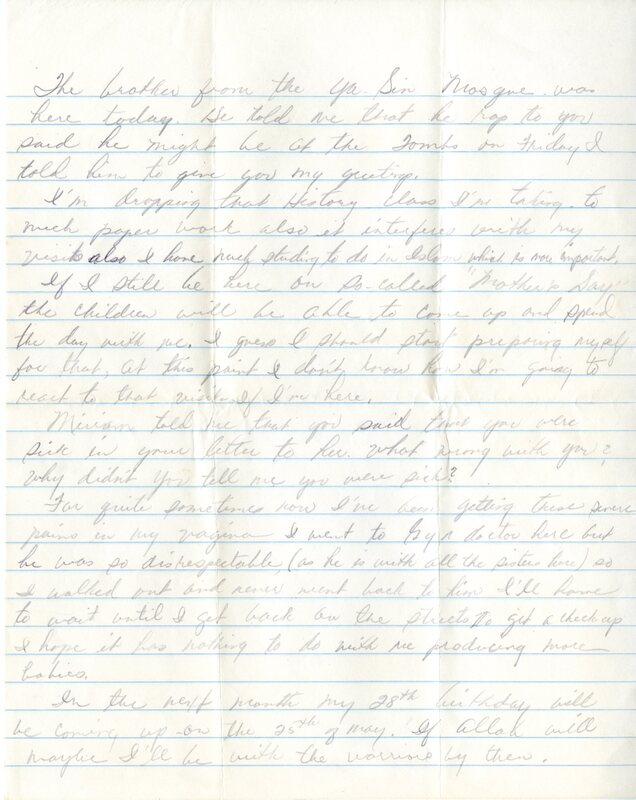 The brother from the Ya-Sin Mosque was
here today. He told me that he rap to you
said he might be at the Tombs on Friday I
told him to give you my greetings.
I'm dropping that History class I'm taking. to
much paper work also it interfere with my
visits also I have much studing to do in Islam which is more important.
If I still be here on so-called "Mother's Day"
the children will be able to come up and spend
the day with me. I guess I should start preparing myself
for that, at this point I don't know how I'm going to
react to that visit. If I'm here.
Miriam told me that you said that you were
sick in your letter to her. What wrong with you?
Why didn't you tell me you were sick?
For quite sometimes now I've been getting these severe
pains in my vagina I went to Gyn doctor here but
he was so disrespectable, (as he is with all the sisters here) so
I walked out and never went back to him I'll have
to wait until I get back on the streets to get a check up
I hope it has nothing to do with me producing more
babies.
In the next month my 28th birthday will
be coming up on the 25th of May. If Allah will
maybe I'll be with the warriors by then.